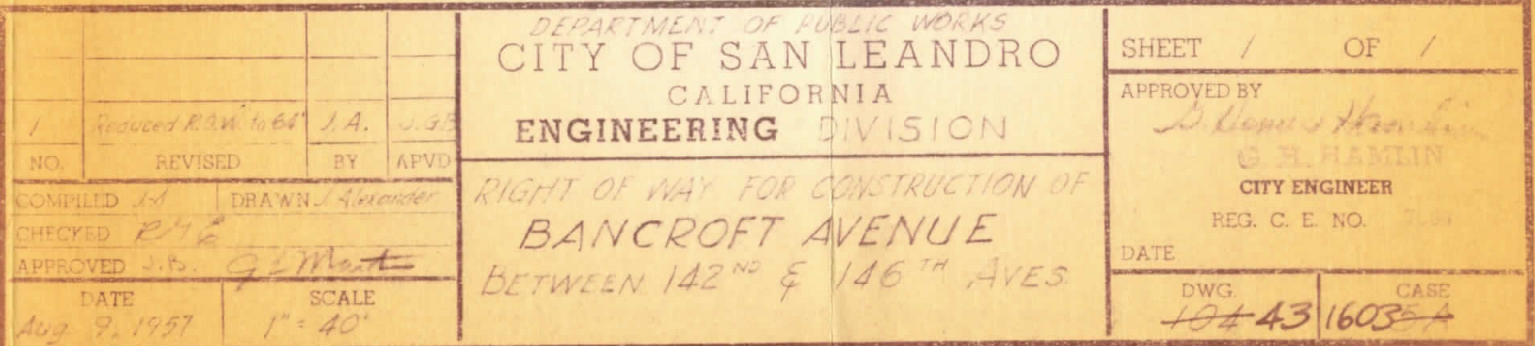 1 Reduced R.O.W. to 64' J.A. J.G.B
NO. REVISED BY APVD
COMPILED J.A DRAWN J. Alexander
CHECKED RME
APPROVED J.B.
DATE SCALE
Aug 9, 1957 1" = 40'
DEPARTMENT OF PUBLIC WORKS
CITY OF SAN LEANDRO
CALIFORNIA
ENGINEERING DIVISION
RIGHT OF WAY FOR CONSTRUCTION OF
BANCROFT AVENUE
BETWEEN 142ND & 146TH AVES.
SHEET 1 OF 1
APPROVED BY
G. H. HAMLIN
CITY ENGINEER
REG. C. E. NO.
DATE
DWG. CASE
104 43 1603 5A